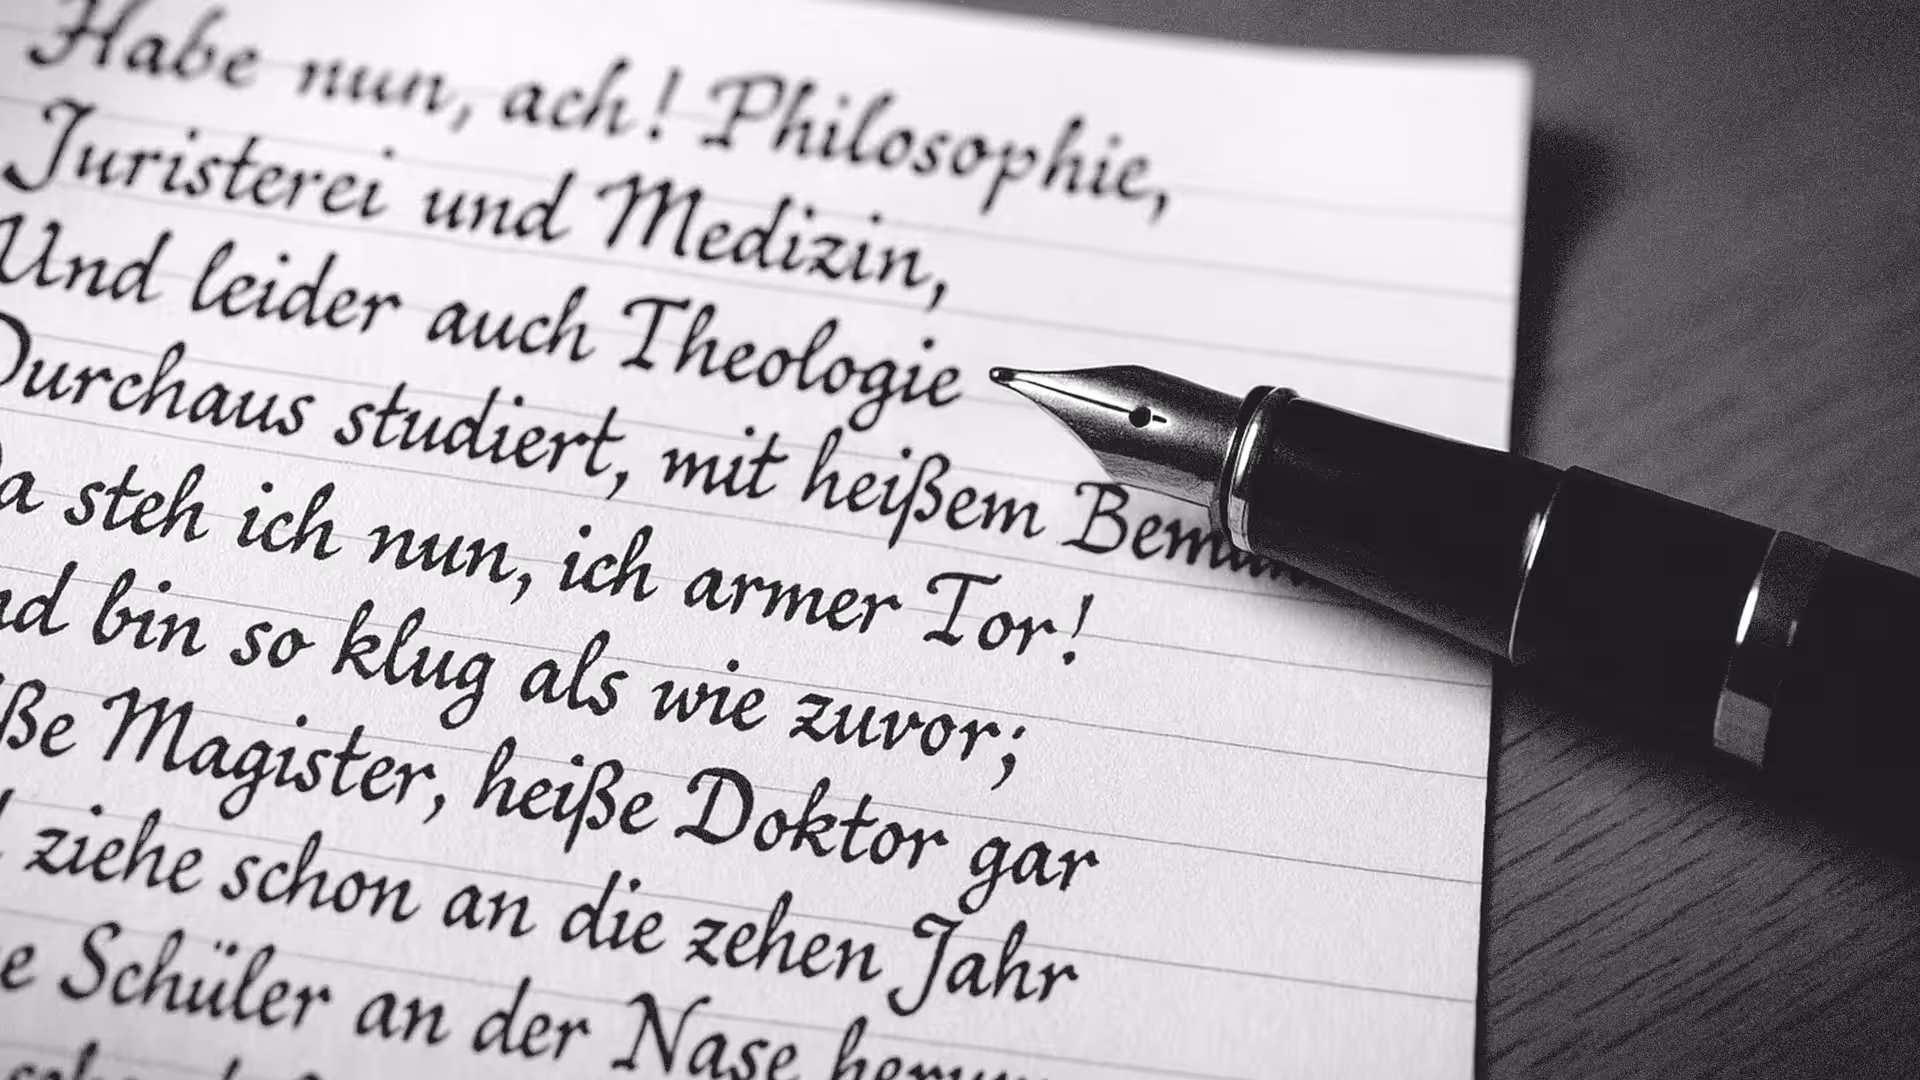 Habe nun, ach! Philosophie,
Juristerei und Medizin,
Und leider auch Theologie
Durchaus studiert, mit heißem
steh ich nun, ich armer Tor!
bin so klug als wie zuvor;
Magister, heiße Doktor gar
ziehe schon an die zehen Jahr
Schüler an der Nase